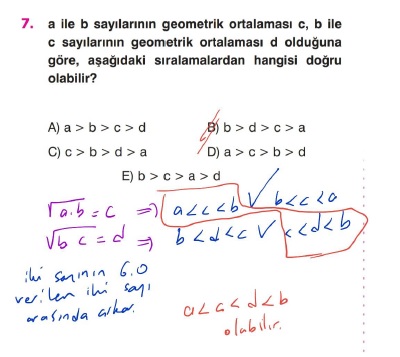 7. a ile b sayılarının geometrik ortalaması c, b ile
c sayılarının geometrik ortalaması d olduğuna
göre, aşağıdaki sıralamalardan hangisi doğru
olabilir?
A) a > b > c > d
B) b > d > c > a
C) c > b > d > a
D) a > c > b > d
E) b > c > a > d
√a.b = c ⇒ a<c<b ∨ b<c<a
√b c = d ⇒ b<d<c ∨ c<d<b
iki sayının G.O
verilen iki sayı
arasında çıkar.
a<c<d<b
olabilir.